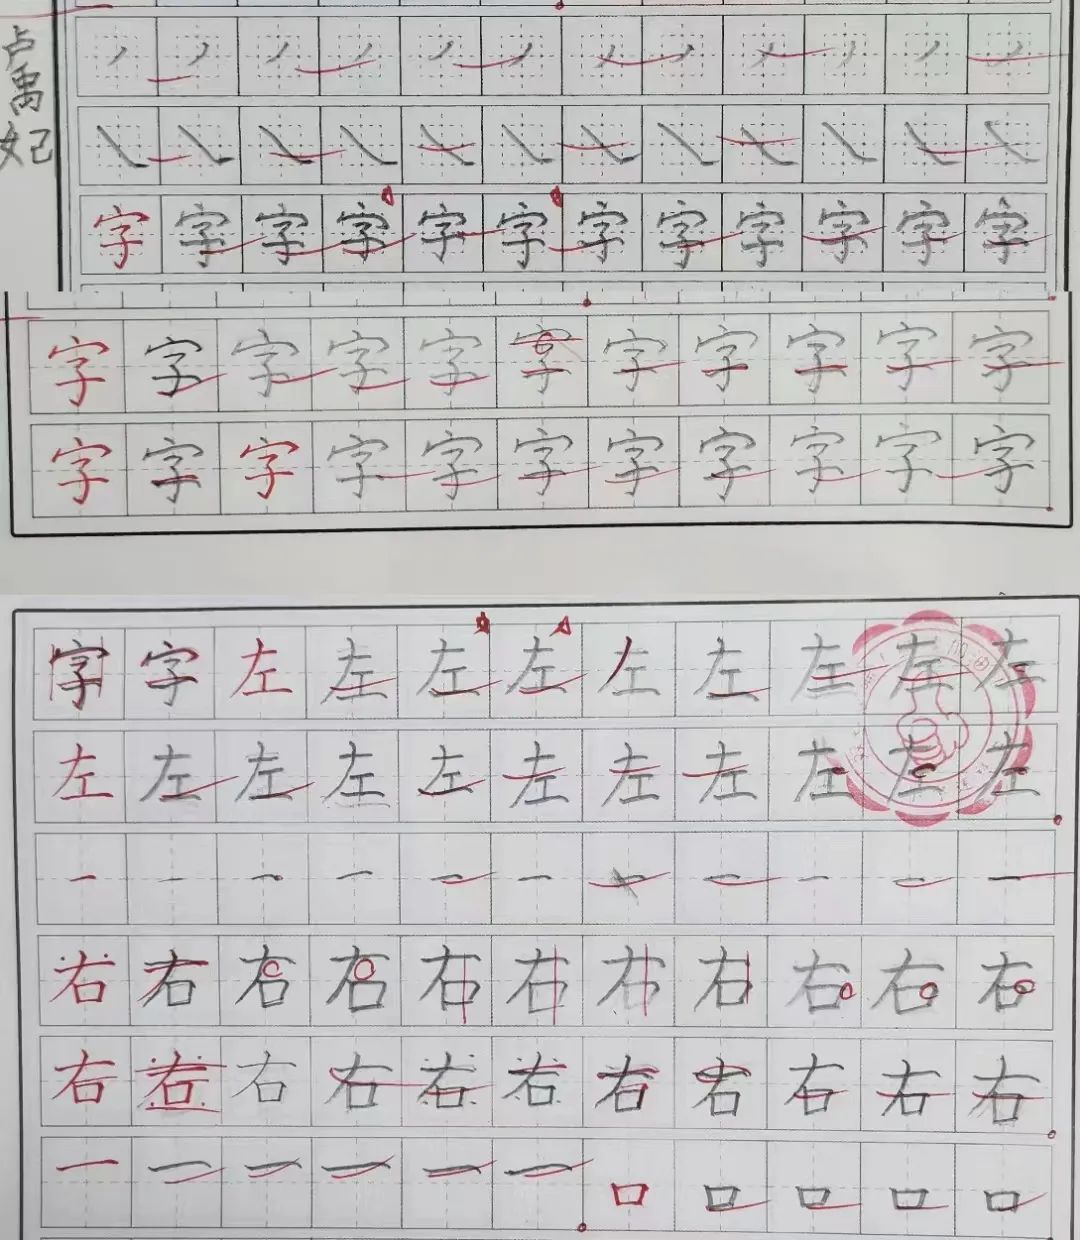 卢禹妃
字字字字字字字字字字字字
字字字字字字字字字字字
字字字字字字字字字字字
字字左左左左左左左左左
左左左左左左左左左左左
一一一一一一一一一一一
右右右右右右右右右右右
右右右右右右右右右右右
一一一一一一口口口口口